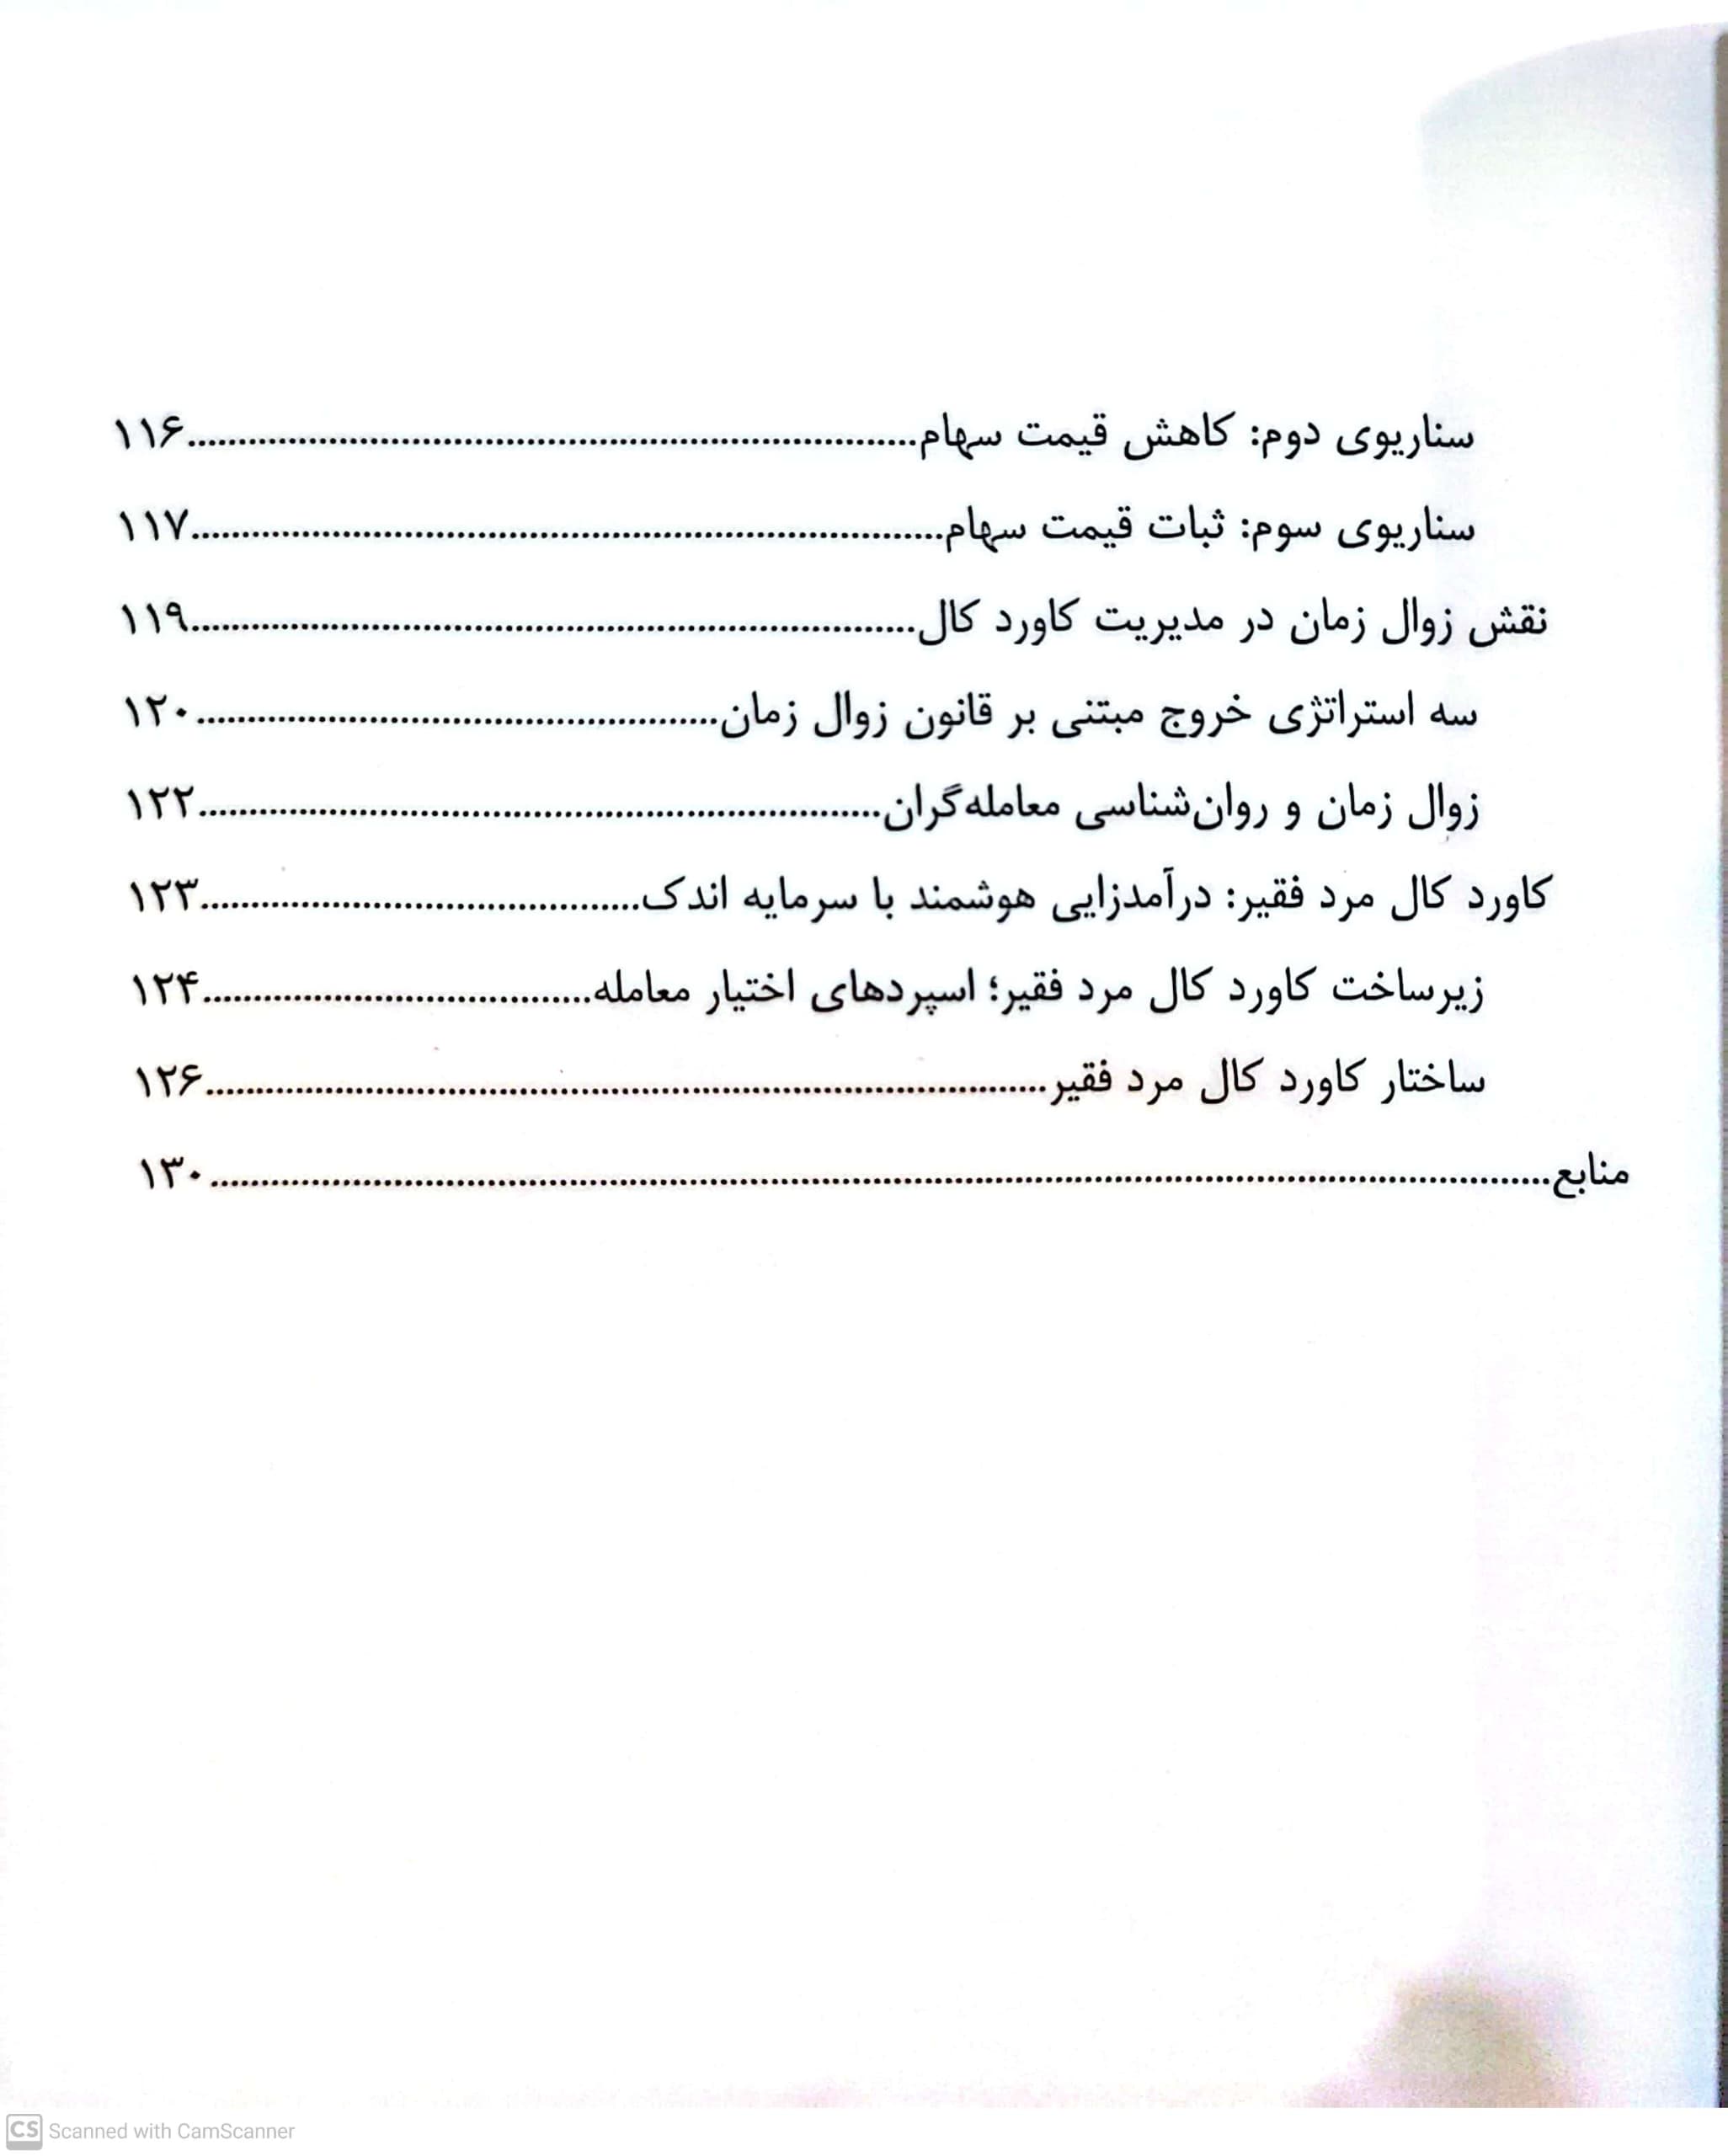 سناریوی دوم: کاهش قیمت سهام........................................۱۱۶
سناریوی سوم: ثبات قیمت سهام........................................۱۱۷
نقش زوال زمان در مدیریت کاورد کال........................................۱۱۹
سه استراتژی خروج مبتنی بر قانون زوال زمان........................................۱۲۰
زوال زمان و روان‌شناسی معامله‌گران........................................۱۲۲
کاورد کال مرد فقیر: درآمدزایی هوشمند با سرمایه اندک........................................۱۲۳
زیرساخت کاورد کال مرد فقیر؛ اسپردهای اختیار معامله........................................۱۲۴
ساختار کاورد کال مرد فقیر........................................۱۲۶
منابع........................................۱۳۰
CS Scanned with CamScanner